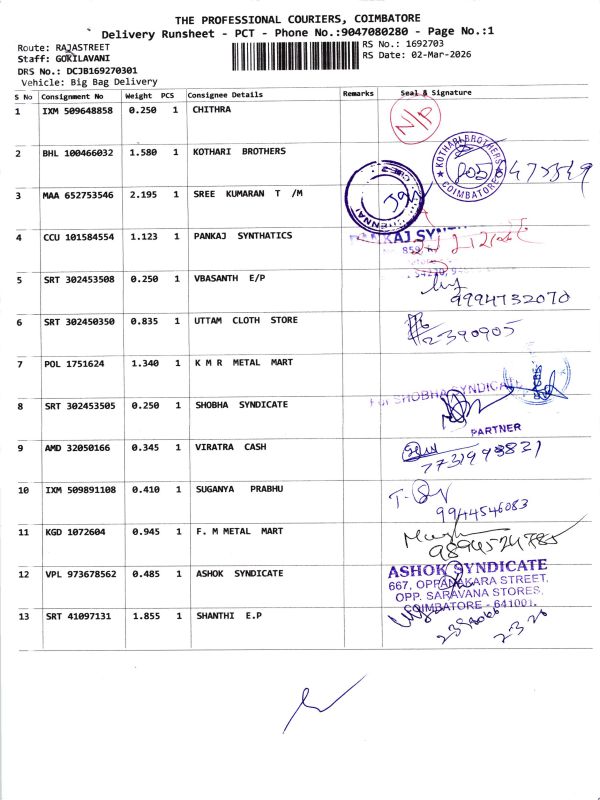 THE PROFESSIONAL COURIERS, COIMBATORE
Delivery Runsheet - PCT - Phone No.:9047080280 - Page No.:1
Route: RAJASTREET
RS No.: 1692703
Staff: GOKILAVANI
RS Date: 02-Mar-2026
DRS No.: DCJB169270301
Vehicle: Big Bag Delivery
S No Consignment No Weight PCS Consignee Details Remarks Seal & Signature
1 IXM 509648858 0.250 1 CHITHRA N/P
2 BHL 100466032 1.580 1 KOTHARI BROTHERS KOTHARI BROTHERS COIMBATORE
3 MAA 652753546 2.195 1 SREE KUMARAN T /M
4 CCU 101584554 1.123 1 PANKAJ SYNTHATICS PANKAJ
5 SRT 302453508 0.250 1 VBASANTH E/P
9994732070
6 SRT 302450350 0.835 1 UTTAM CLOTH STORE
2390905
7 POL 1751624 1.340 1 K M R METAL MART
For SHOBHA SYNDICATE
8 SRT 302453505 0.250 1 SHOBHA SYNDICATE
PARTNER
9 AMD 32050166 0.345 1 VIRATRA CASH
10 IXM 509891108 0.410 1 SUGANYA PRABHU
9944546083
11 KGD 1072604 0.945 1 F. M METAL MART
9894524785
12 VPL 973678562 0.485 1 ASHOK SYNDICATE ASHOK SYNDICATE
667, OPPANAKARA STREET,
OPP. SARAVANA STORES,
COIMBATORE - 641001.
13 SRT 41097131 1.855 1 SHANTHI E.P
2-3-26